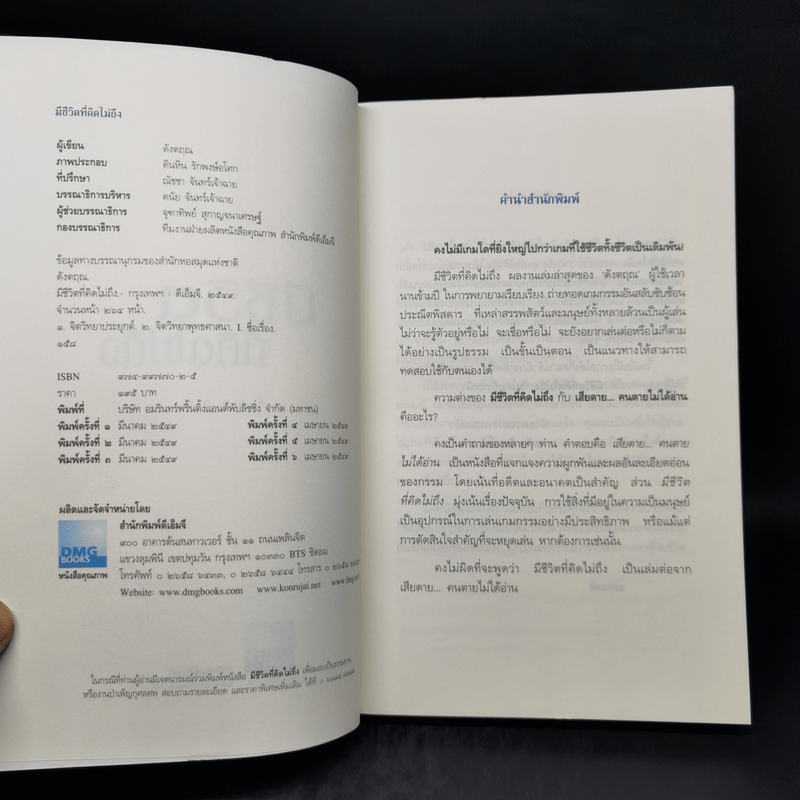 มีชีวิตที่คิดไม่ถึง
ผู้เขียน ดังตฤณ
ภาพประกอบ ดินหิน รักพงษ์อโศก
ที่ปรึกษา ณัชชา จันทร์เจ้าฉาย
บรรณาธิการบริหาร ดนัย จันทร์เจ้าฉาย
ผู้ช่วยบรรณาธิการ จุฑาทิพย์ สุกาญจนาเศรษฐ์
กองบรรณาธิการ ทีมงานฝ่ายผลิตหนังสือคุณภาพ สำนักพิมพ์ดีเอ็มจี
ข้อมูลทางบรรณานุกรมของสำนักหอสมุดแห่งชาติ
ดังตฤณ.
มีชีวิตที่คิดไม่ถึง.- กรุงเทพฯ : ดีเอ็มจี. ๒๕๔๙.
จำนวนหน้า ๒๖๔ หน้า.
๑. จิตวิทยาประยุกต์. ๒. จิตวิทยาพุทธศาสนา. I. ชื่อเรื่อง.
๑๕๘
ISBN ๙๗๔-๙๙๗๗๐-๒-๕
ราคา ๑๙๕ บาท
พิมพ์ที่ บริษัท อมรินทร์พริ้นติ้งแอนด์พับลิชชิ่ง จำกัด (มหาชน)
พิมพ์ครั้งที่ ๑ มีนาคม ๒๕๔๙ พิมพ์ครั้งที่ ๔ เมษายน ๒๕๔๙
พิมพ์ครั้งที่ ๒ มีนาคม ๒๕๔๙ พิมพ์ครั้งที่ ๕ เมษายน ๒๕๔๙
พิมพ์ครั้งที่ ๓ มีนาคม ๒๕๔๙ พิมพ์ครั้งที่ ๖ เมษายน ๒๕๔๙
ผลิตและจัดจำหน่ายโดย
สำนักพิมพ์ดีเอ็มจี
๙๐๐ อาคารต้นสนทาวเวอร์ ชั้น ๑๑ ถนนเพลินจิต
แขวงลุมพินี เขตปทุมวัน กรุงเทพฯ ๑๐๓๓๐ BTS ชิดลม
โทรศัพท์ ๐ ๒๖๕๘ ๖๔๓๓, ๐ ๒๖๕๘ ๖๔๔๔ โทรสาร ๐ ๒๖๕๘
Website: www.dmgbooks.com www.konrujai.net www.dmg
DMG
BOOKS
หนังสือคุณภาพ
ในกรณีที่ท่านผู้อ่านมีเจตนารมณ์ร่วมพิมพ์หนังสือ มีชีวิตที่คิดไม่ถึง เพื่อมอบเป็นธรรมทาน
หรืองานบำเพ็ญกุศลศพ สอบถามรายละเอียด และราคาพิเศษเพิ่มเติม ได้ที่
คำนำสำนักพิมพ์
คงไม่มีเกมใดที่ยิ่งใหญ่ไปกว่าเกมที่ใช้ชีวิตทั้งชีวิตเป็นเดิมพัน!
มีชีวิตที่คิดไม่ถึง ผลงานเล่มล่าสุดของ ‘ดังตฤณ’ ผู้ใช้เวลา
นานข้ามปี ในการพยายามเรียบเรียง ถ่ายทอดเกมกรรมอันสลับซับซ้อน
ประณีตพิสดาร ที่เหล่าสรรพสัตว์และมนุษย์ทั้งหลายล้วนเป็นผู้เล่น
ไม่ว่าจะรู้ตัวอยู่หรือไม่ จะเชื่อหรือไม่ จะยังอยากเล่นต่อหรือไม่ก็ตาม
ได้อย่างเป็นรูปธรรม เป็นขั้นเป็นตอน เป็นแนวทางให้สามารถ
ทดสอบใช้กับตนเองได้
ความต่างของ มีชีวิตที่คิดไม่ถึง กับ เสียดาย... คนตายไม่ได้อ่าน
คืออะไร?
คงเป็นคำถามของหลายๆ ท่าน คำตอบคือ เสียดาย... คนตาย
ไม่ได้อ่าน เป็นหนังสือที่แจกแจงความผูกพันและผลอันละเอียดอ่อน
ของกรรม โดยเน้นที่อดีตและอนาคตเป็นสำคัญ ส่วน มีชีวิต
ที่คิดไม่ถึง มุ่งเน้นเรื่องปัจจุบัน การใช้สิ่งที่มีอยู่ในความเป็นมนุษย์
เป็นอุปกรณ์ในการเล่นเกมกรรมอย่างมีประสิทธิภาพ หรือแม้แต่
การตัดสินใจสำคัญที่จะหยุดเล่น หากต้องการเช่นนั้น
คงไม่ผิดที่จะพูดว่า มีชีวิตที่คิดไม่ถึง เป็นเล่มต่อจาก
เสียดาย... คนตายไม่ได้อ่าน